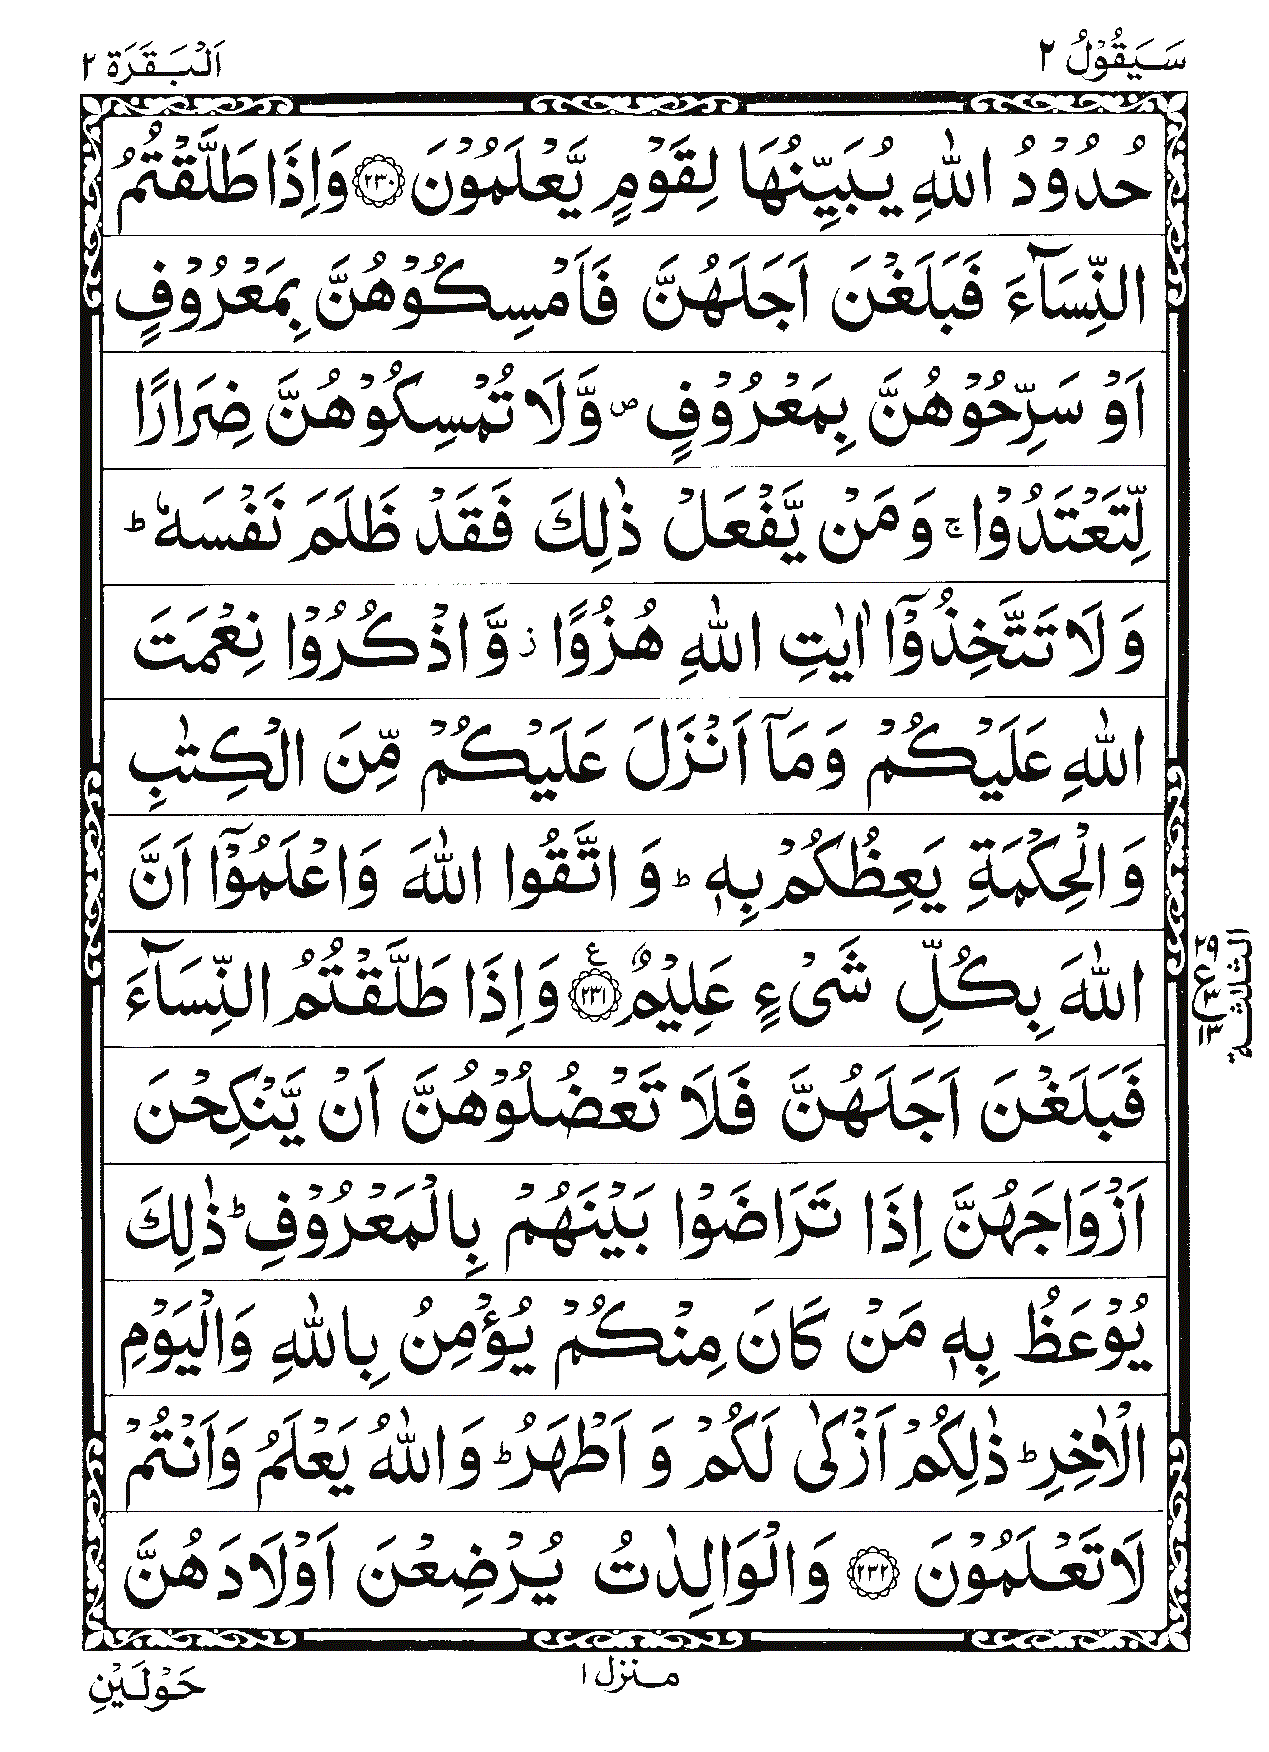 سَيَقُوۡلُ ٢
اَلۡبَقَرَة ٢
حُدُوۡدُ اللّٰهِ يُبَيِّنُهَا لِقَوۡمٍ يَّعۡلَمُوۡنَ ﴿٢٣٠﴾ وَاِذَا طَلَّقۡتُمُ
النِّسَآءَ فَبَلَغۡنَ اَجَلَهُنَّ فَاَمۡسِكُوۡهُنَّ بِمَعۡرُوۡفٍ
اَوۡ سَرِّحُوۡهُنَّ بِمَعۡرُوۡفٍ ص وَّلَا تُمۡسِكُوۡهُنَّ ضِرَارًا
لِّتَعۡتَدُوۡا ۚ وَمَنۡ يَّفۡعَلۡ ذٰلِكَ فَقَدۡ ظَلَمَ نَفۡسَهٗ ؕ
وَلَا تَتَّخِذُوۡٓا اٰيٰتِ اللّٰهِ هُزُوًا ز وَّاذۡكُرُوۡا نِعۡمَتَ
اللّٰهِ عَلَيۡكُمۡ وَمَآ اَنۡزَلَ عَلَيۡكُمۡ مِّنَ الۡكِتٰبِ
وَالۡحِكۡمَةِ يَعِظُكُمۡ بِهٖ ؕ وَاتَّقُوا اللّٰهَ وَاعۡلَمُوۡٓا اَنَّ
اللّٰهَ بِكُلِّ شَىۡءٍ عَلِيۡمٌ ﴿٢٣١﴾ ع وَاِذَا طَلَّقۡتُمُ النِّسَآءَ
فَبَلَغۡنَ اَجَلَهُنَّ فَلَا تَعۡضُلُوۡهُنَّ اَنۡ يَّنۡكِحۡنَ
اَزۡوَاجَهُنَّ اِذَا تَرَاضَوۡا بَيۡنَهُمۡ بِالۡمَعۡرُوۡفِ ؕ ذٰلِكَ
يُوۡعَظُ بِهٖ مَنۡ كَانَ مِنۡكُمۡ يُؤۡمِنُ بِاللّٰهِ وَالۡيَوۡمِ
الۡاٰخِرِ ؕ ذٰلِكُمۡ اَزۡكٰى لَكُمۡ وَاَطۡهَرُ ؕ وَاللّٰهُ يَعۡلَمُ وَاَنۡتُمۡ
لَا تَعۡلَمُوۡنَ ﴿٢٣٢﴾ وَالۡوَالِدٰتُ يُرۡضِعۡنَ اَوۡلَادَهُنَّ
الثلاثة
٢٩
ع
٣
١٣
منزل ١
حَوۡلَيۡنِ